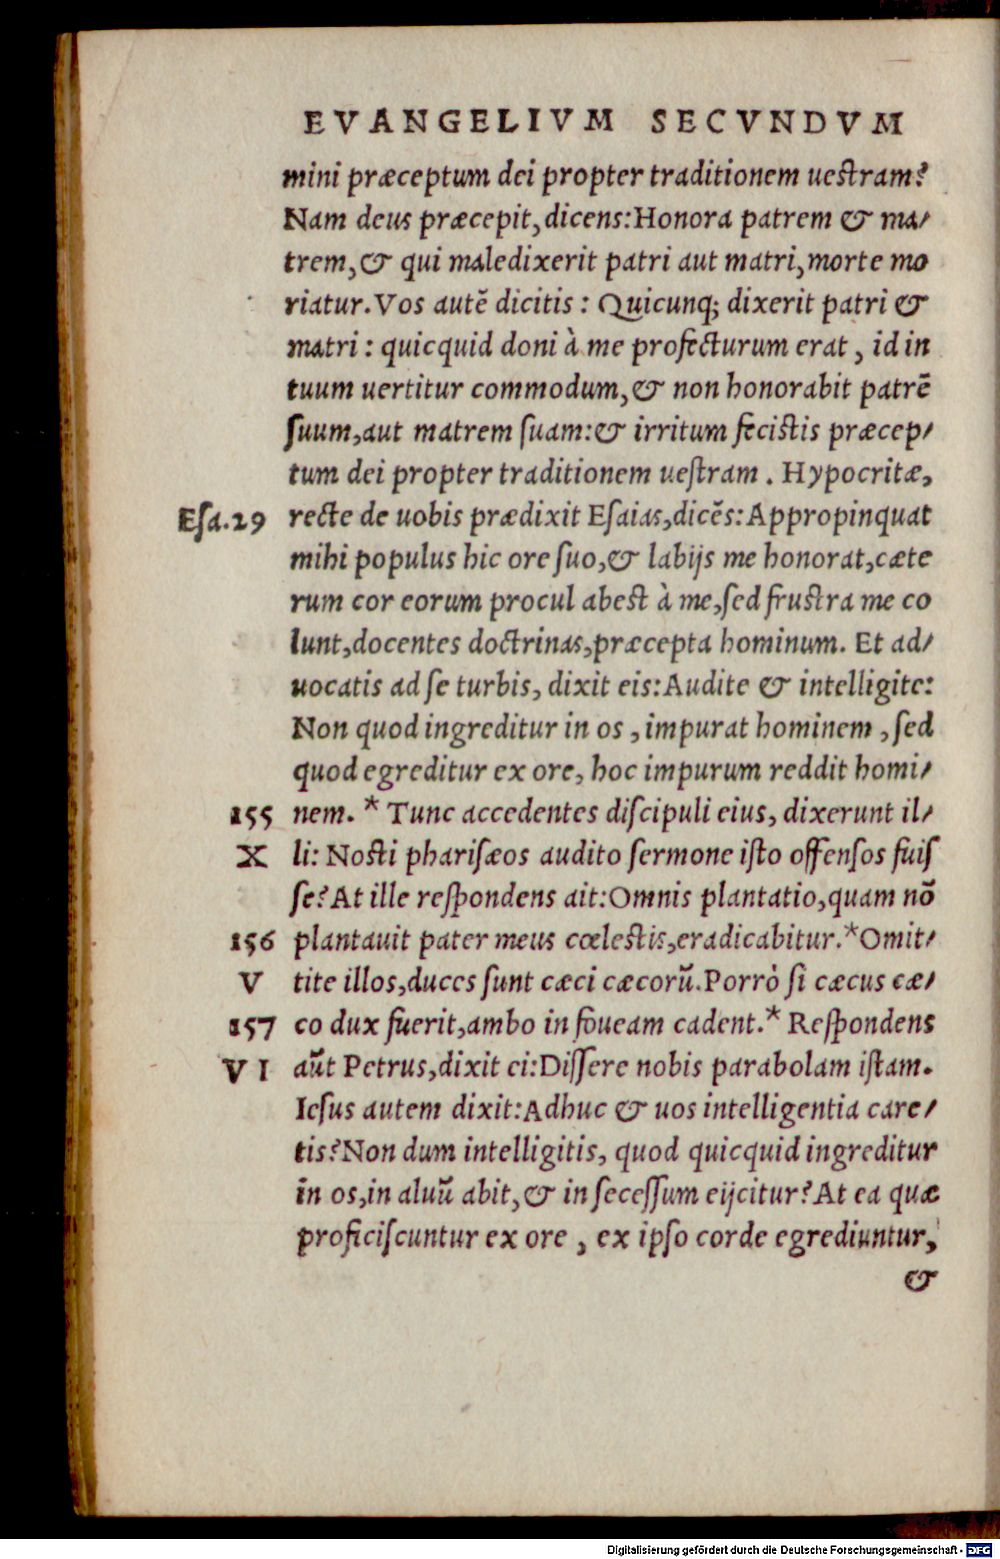 EVANGELIVM SECVNDVM
mini præceptum dei propter traditionem ueſtram?
Nam deus præcepit, dicens: Honora patrem & ma/
trem, & qui maledixerit patri aut matri, morte mo
riatur. Vos autē dicitis : Quicunq; dixerit patri &
matri : quicquid doni à me profecturum erat , id in
tuum uertitur commodum, & non honorabit patrē
ſuum, aut matrem ſuam: & irritum feciſtis præcep/
tum dei propter traditionem ueſtram . Hypocritæ,
Eſa.29 recte de uobis prædixit Eſaias, dicēs: Appropinquat
mihi populus hic ore ſuo, & labijs me honorat, cæte
rum cor eorum procul abeſt à me, ſed fruſtra me co
lunt, docentes doctrinas, præcepta hominum. Et ad/
uocatis ad ſe turbis, dixit eis: Audite & intelligite:
Non quod ingreditur in os , impurat hominem , ſed
quod egreditur ex ore, hoc impurum reddit homi/
155 nem. * Tunc accedentes diſcipuli eius, dixerunt il/
X li: Noſti phariſæos audito ſermone iſto offenſos fuiſ
ſe? At ille reſpondens ait: Omnis plantatio, quam nō
156 plantauit pater meus cœleſtis, eradicabitur.* Omit/
V tite illos, duces ſunt cæci cæcorū. Porrò ſi cæcus cæ/
157 co dux fuerit, ambo in foueam cadent.* Reſpondens
VI aūt Petrus, dixit ei: Diſſere nobis parabolam iſtam.
Ieſus autem dixit: Adhuc & uos intelligentia care/
tis? Non dum intelligitis, quod quicquid ingreditur
in os, in aluū abit, & in ſeceſſum eijcitur? At ea quæ
proficiſcuntur ex ore , ex ipſo corde egrediuntur,
&
Digitalisierung gefördert durch die Deutsche Forschungsgemeinschaft - DFG